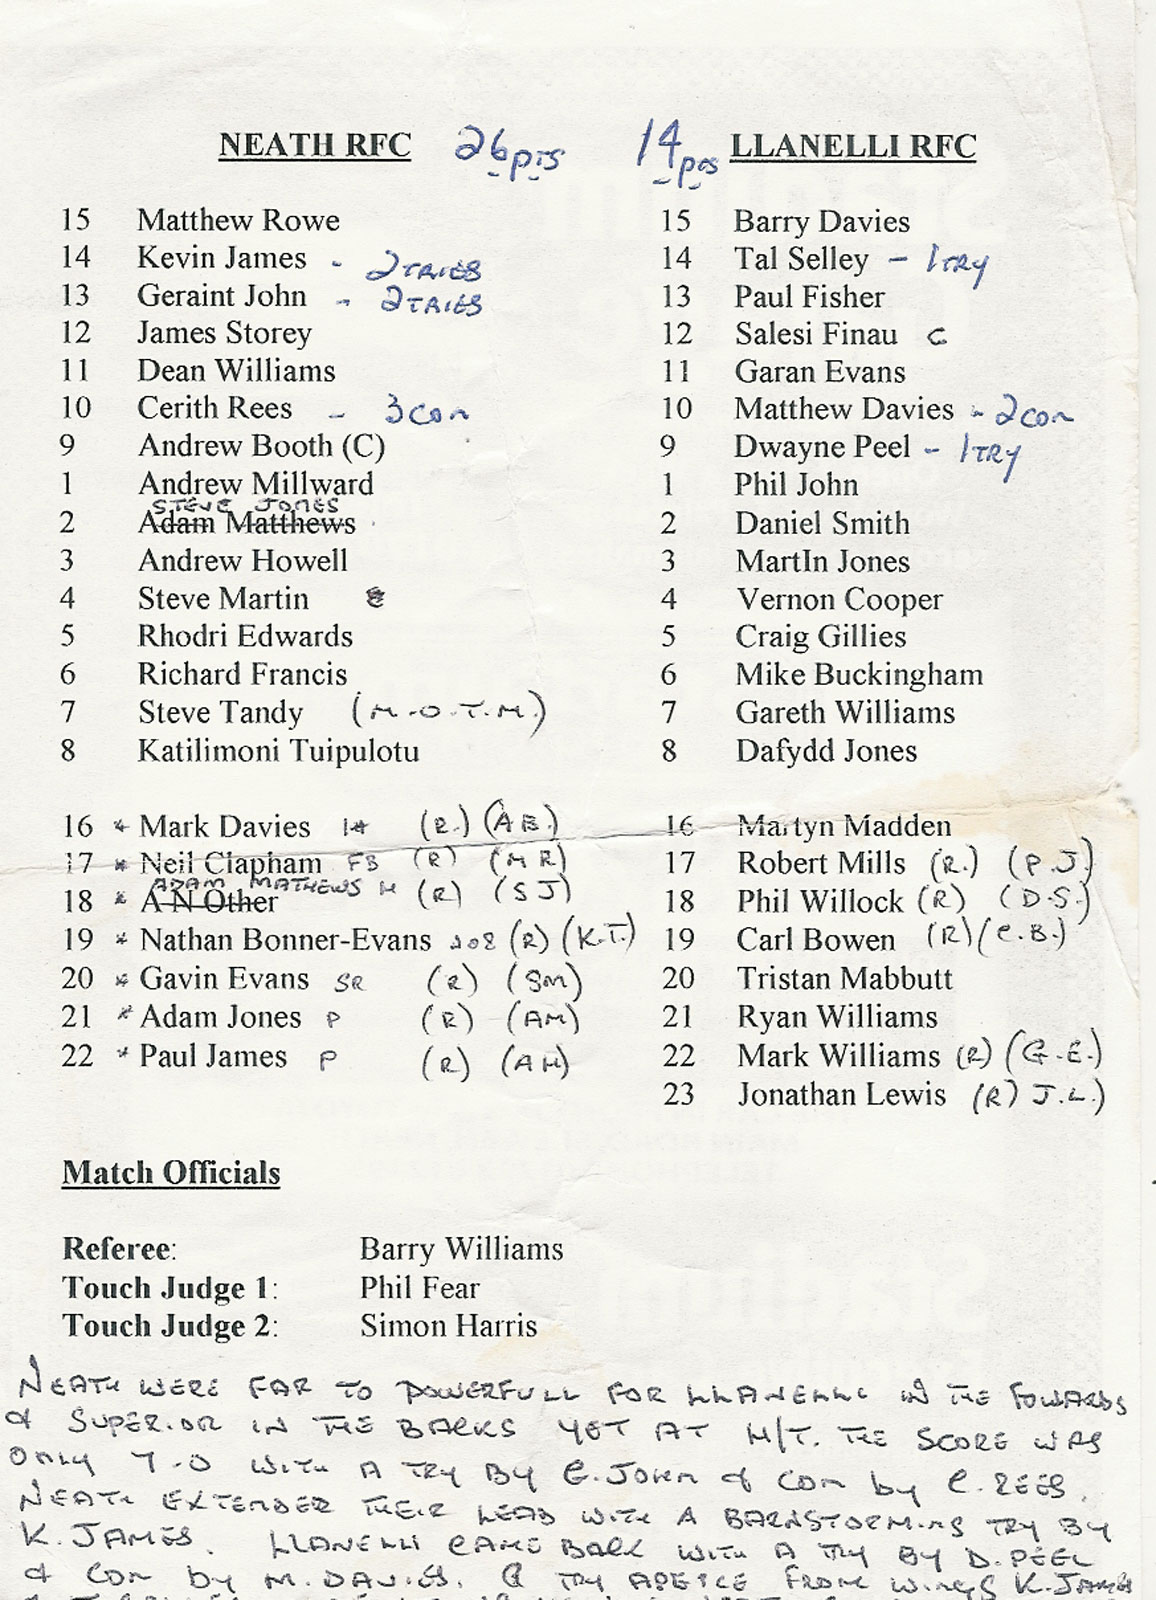 NEATH RFC 26pts 14pts LLANELLI RFC
15 Matthew Rowe
14 Kevin James - 2 TRIES
13 Geraint John - 2 TRIES
12 James Storey
11 Dean Williams
10 Cerith Rees - 3 con
9 Andrew Booth (C)
1 Andrew Millward
STEVE JONES
2 Adam Matthews
3 Andrew Howell
4 Steve Martin
5 Rhodri Edwards
6 Richard Francis
7 Steve Tandy (M.O.T.M.)
8 Katilimoni Tuipulotu
16 * Mark Davies (R.) (A B.)
17 * Neil Clapham FB (R) (M R)
ADAM MATHEWS H (R) (S J)
18 * A N Other
19 * Nathan Bonner-Evans (R) (K.T.)
20 * Gavin Evans SR (R) (SM)
21 * Adam Jones P (R) (AM)
22 * Paul James P (R) (AH)
15 Barry Davies
14 Tal Selley - 1 TRY
13 Paul Fisher
12 Salesi Finau C
11 Garan Evans
10 Matthew Davies - 2 con
9 Dwayne Peel - 1 TRY
1 Phil John
2 Daniel Smith
3 MartIn Jones
4 Vernon Cooper
5 Craig Gillies
6 Mike Buckingham
7 Gareth Williams
8 Dafydd Jones
16 Martyn Madden
17 Robert Mills (R.) (P.J.)
18 Phil Willock (R) (D.S.)
19 Carl Bowen (R) (C.B.)
20 Tristan Mabbutt
21 Ryan Williams
22 Mark Williams (R) (G.E.)
23 Jonathan Lewis (R) J.L.)
Match Officials
Referee: Barry Williams
Touch Judge 1: Phil Fear
Touch Judge 2: Simon Harris
NEATH WERE FAR TO POWERFULL FOR LLANELLI IN THE FOWARDS
& SUPERIOR IN THE BACKS YET AT H/T. THE SCORE WAS
ONLY 7-0 WITH A TRY BY G. JOHN & CON by C. REES.
NEATH EXTENDER THEIR LEAD WITH A BARNSTORMING TRY BY
K. JAMES. LLANELLI CAME BACK WITH A TRY BY D. PEEL
& CON by M. DAVIES. TRY APEICE FROM WINGS K. JAMES